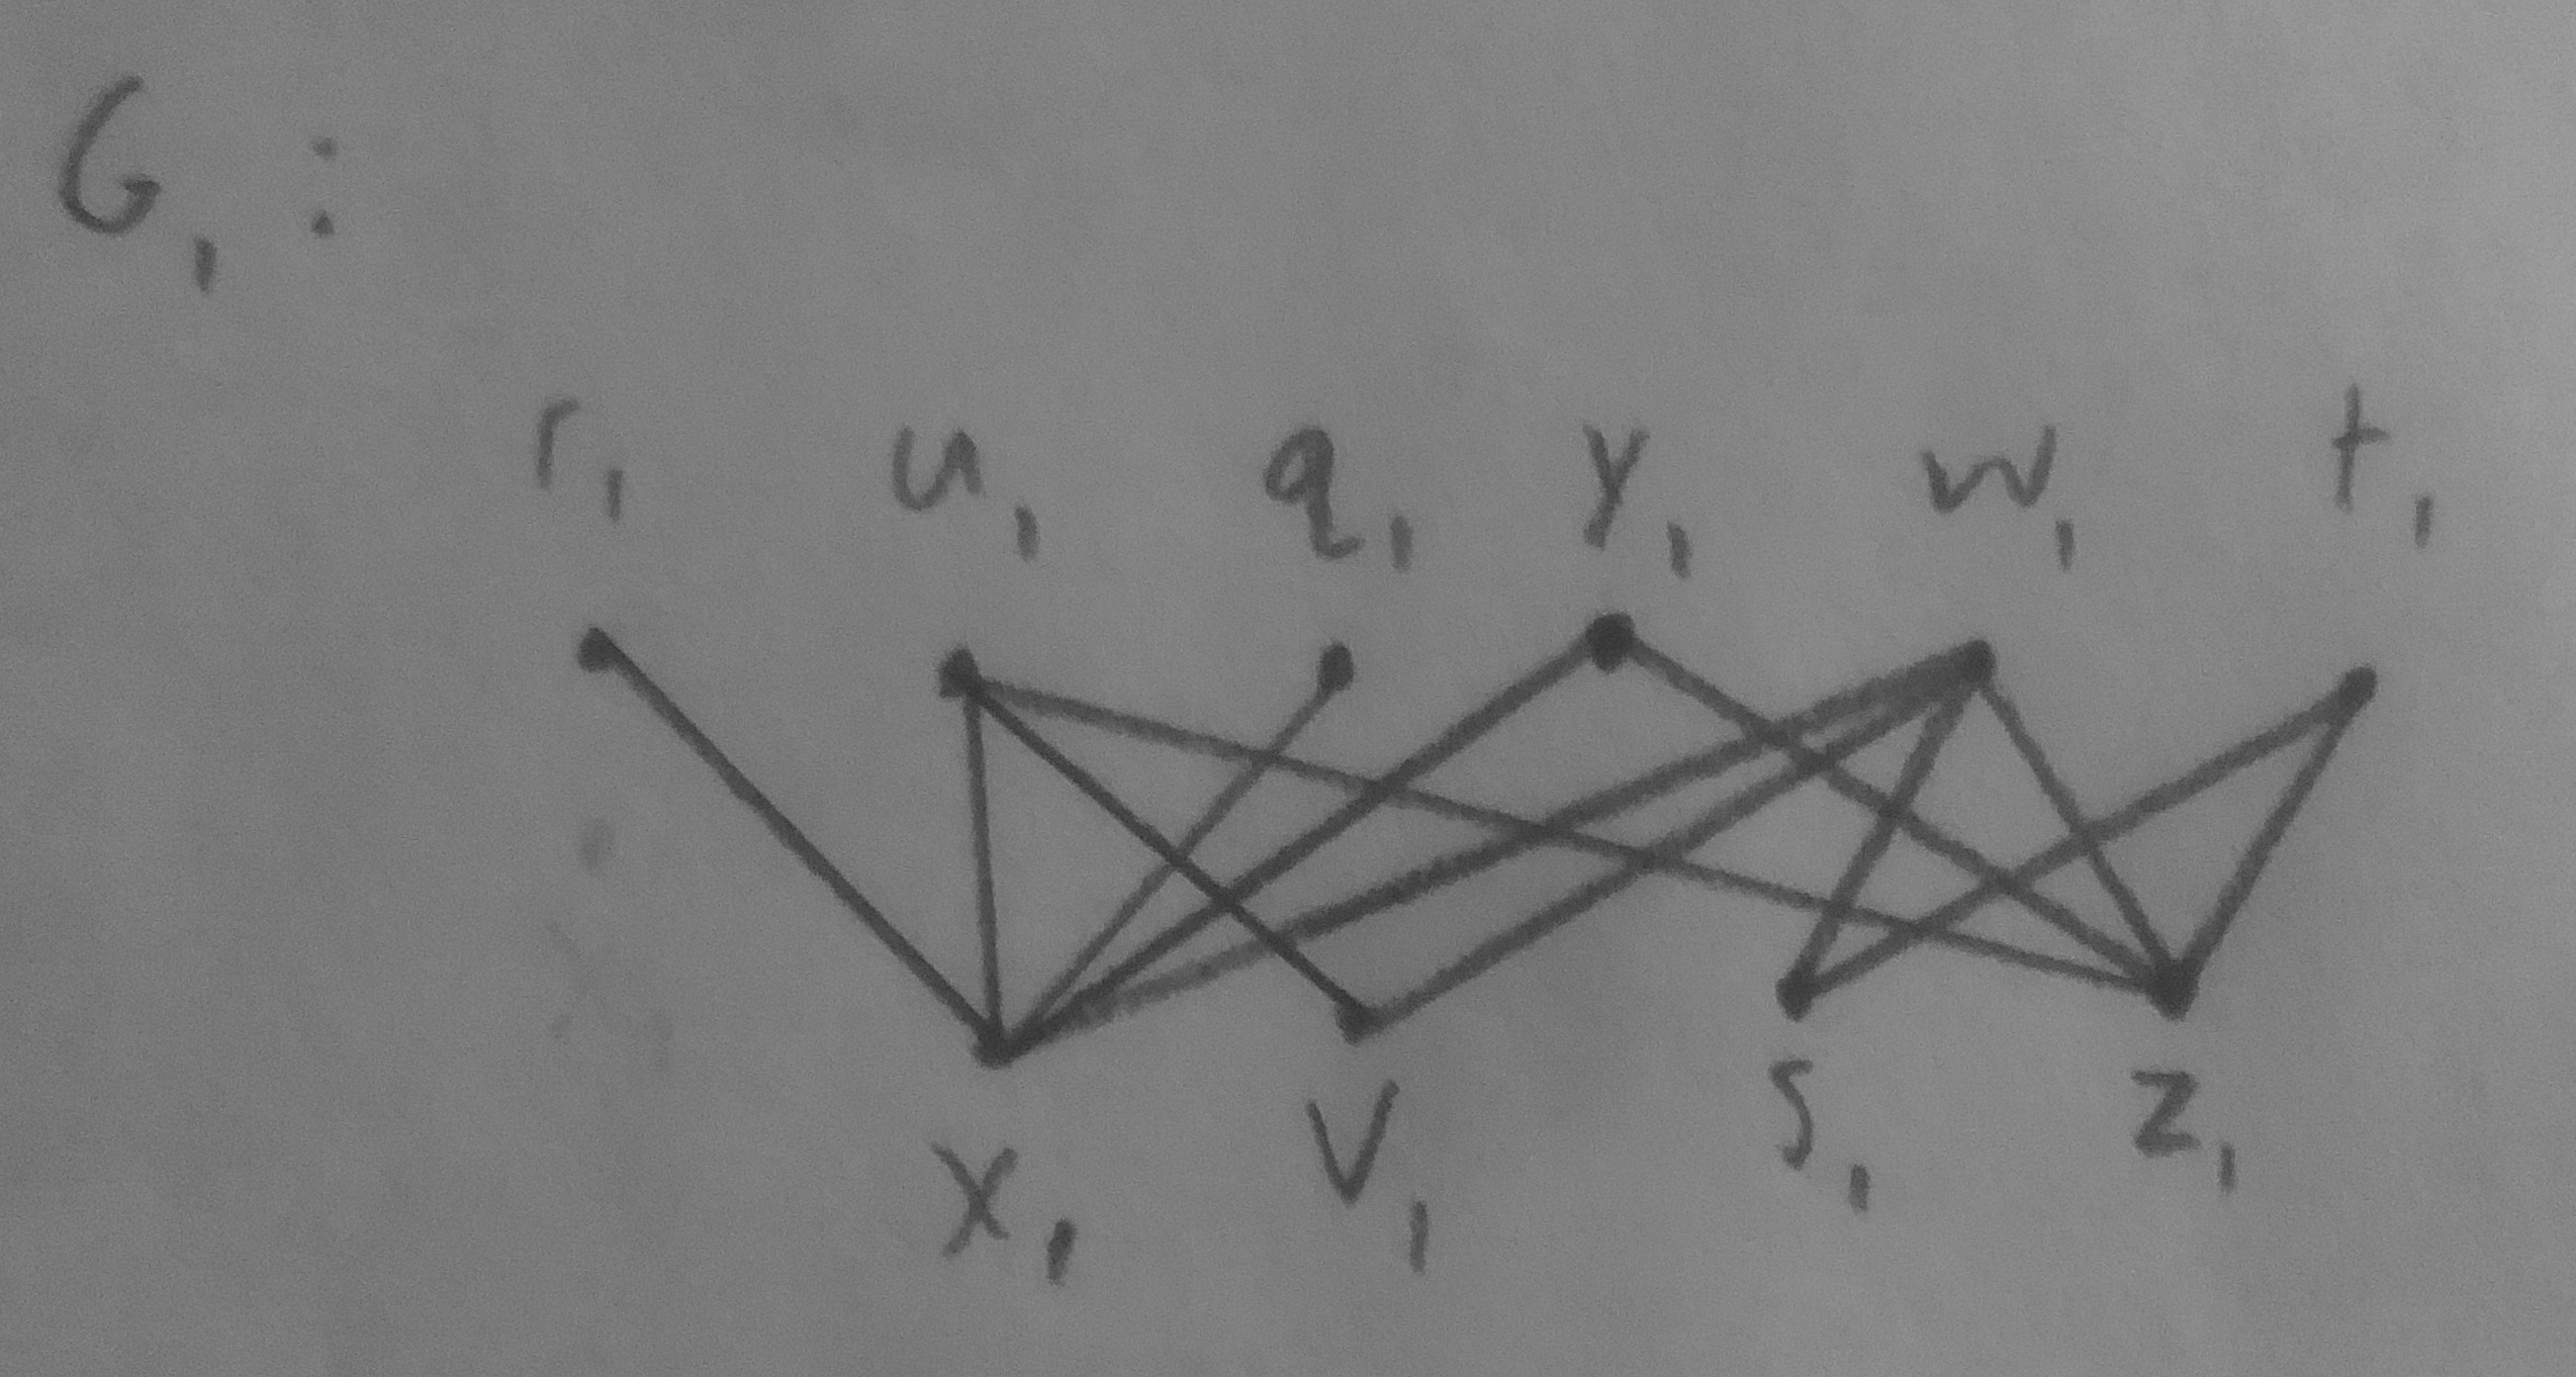 G₁:
r₁ u₁ q₁ y₁ w₁ t₁
x₁ v₁ s₁ z₁